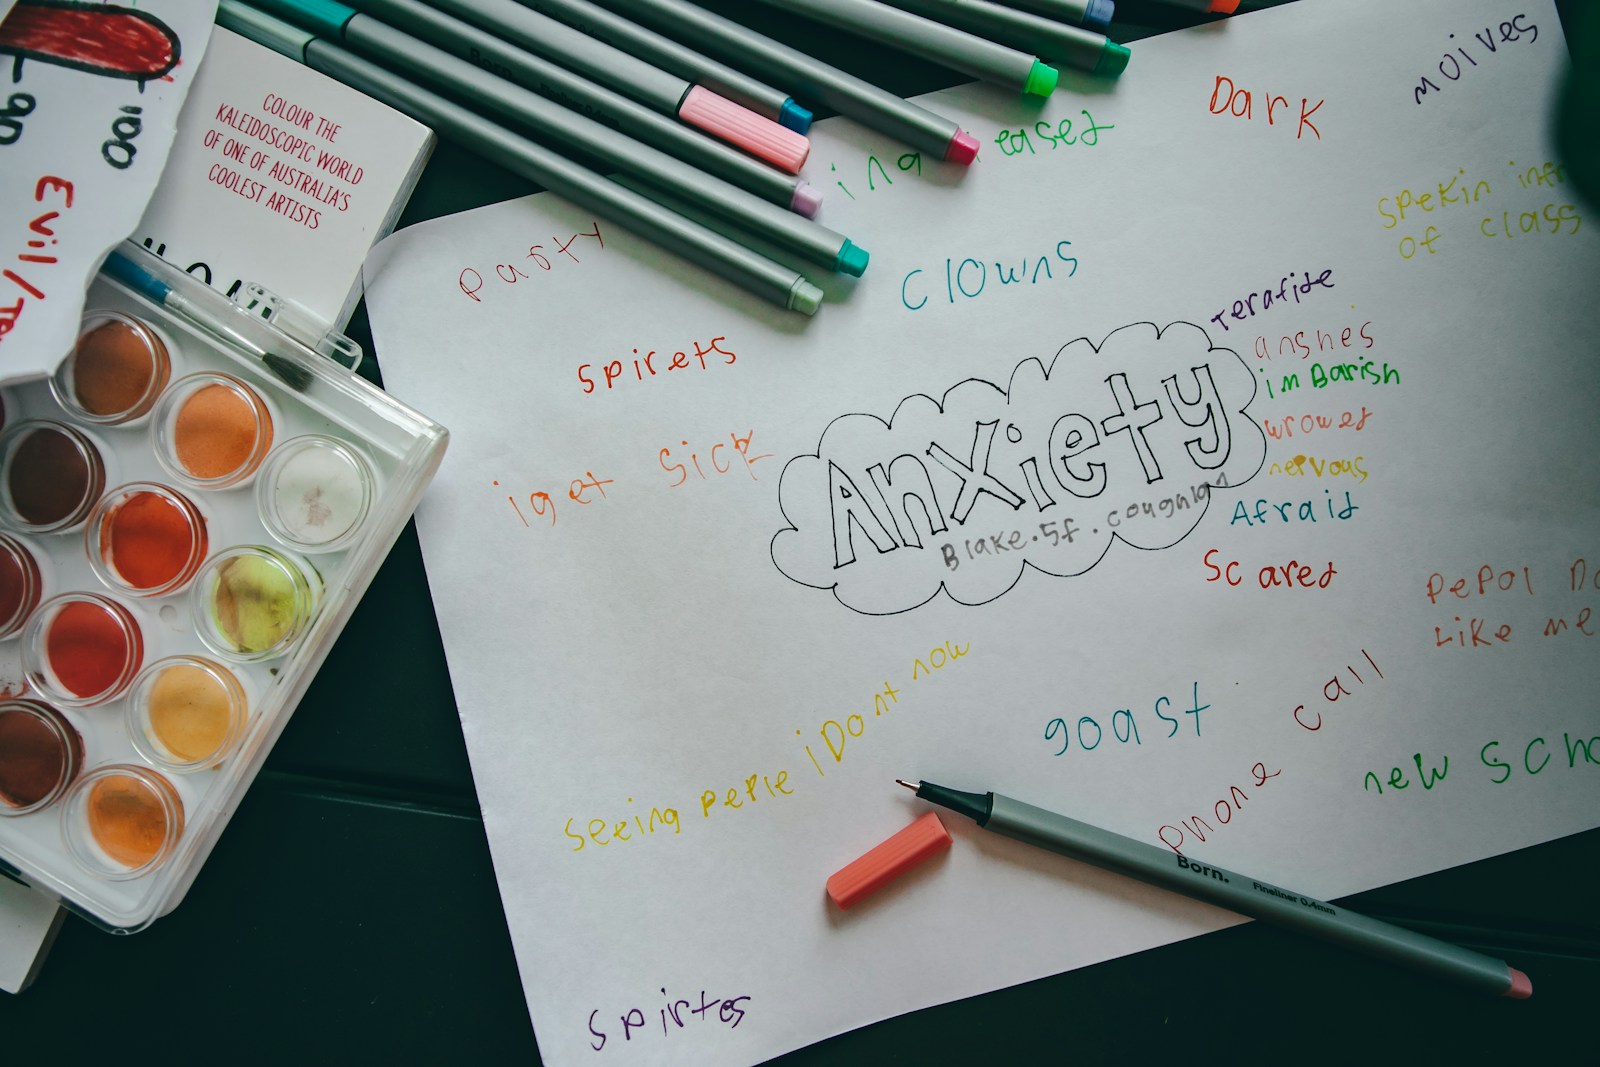 100
90
Evil/
COLOUR THE
KALEIDOSCOPIC WORLD
OF ONE OF AUSTRALIA'S
COOLEST ARTISTS
Born.
moives
Dark
ing
eased
spekin
of class
party
clowns
terafide
spirets
anshes
imBarish
wrowed
iget sick
Anxiety
nervous
Blake.5f.coughlan
Afraid
Scared
pepol
Like me
seeing peple iDont now
goast
phone call
new
Born.
Fineliner 0,4mm
spirtes